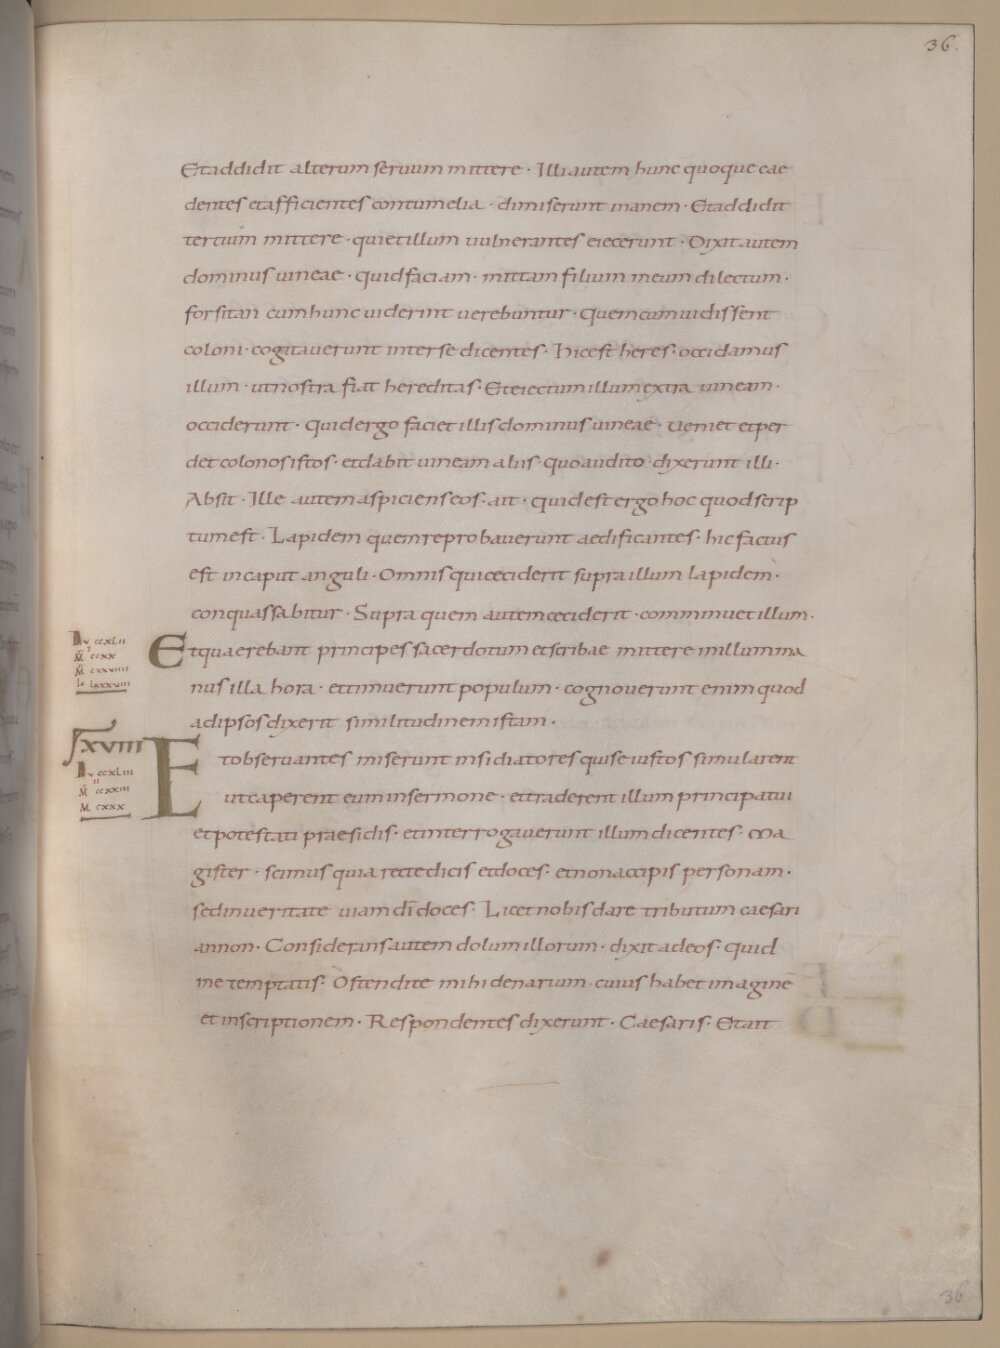 36.
Et addidit alterum seruum mittere · Illi autem hunc quoque cae
dentes et afficientes contumelia · dimiserunt inanem · Et addidit
tertium mittere · qui et illum uulnerantes eiecerunt · Dixit autem
dominus uineae · quid faciam · mittam filium meum dilectum ·
forsitan cum hunc uiderint uerebuntur · Quem cum uidissent
coloni · cogitauerunt inter se dicentes · Hic est heres · occidamus
illum · ut nostra fiat hereditas · Et eiectum illum extra uineam ·
occiderunt · Quid ergo faciet illis dominus uineae · ueniet et per
det colonos istos · et dabit uineam aliis · quo audito dixerunt illi ·
Absit · Ille autem aspiciens eos · ait · quid est ergo hoc quod scrip
tum est · Lapidem quem reprobauerunt aedificantes · hic factus
est in caput anguli · Omnis qui ceciderit supra illum lapidem ·
conquassabitur · Supra quem autem ceciderit · comminuet illum ·
Lv ccxLii
M ccxx
M cxxviiii
Io Lxxxviii
Et quaerebant principes sacerdotum et scribae mittere in illum ma
nus illa hora · et timuerunt populum · cognouerunt enim quod
ad ipsos dixerit similitudinem istam ·
xviii
Lv ccxLiii
M ccxxiii
M cxxx
Et obseruantes miserunt insidiatores qui se iustos simularent
ut caperent eum in sermone · et traderent illum principatui
et potestati praesidis · et interrogauerunt illum dicentes · Ma
gister · scimus quia recte dicis et doces · et non accipis personam ·
sed in ueritate uiam dī doces · Licet nobis dare tributum caesari
an non · Considerans autem dolum illorum · dixit ad eos · quid
me temptatis · Ostendite mihi denarium · cuius habet imaginē
et inscriptionem · Respondentes dixerunt · Caesaris · Et ait
36